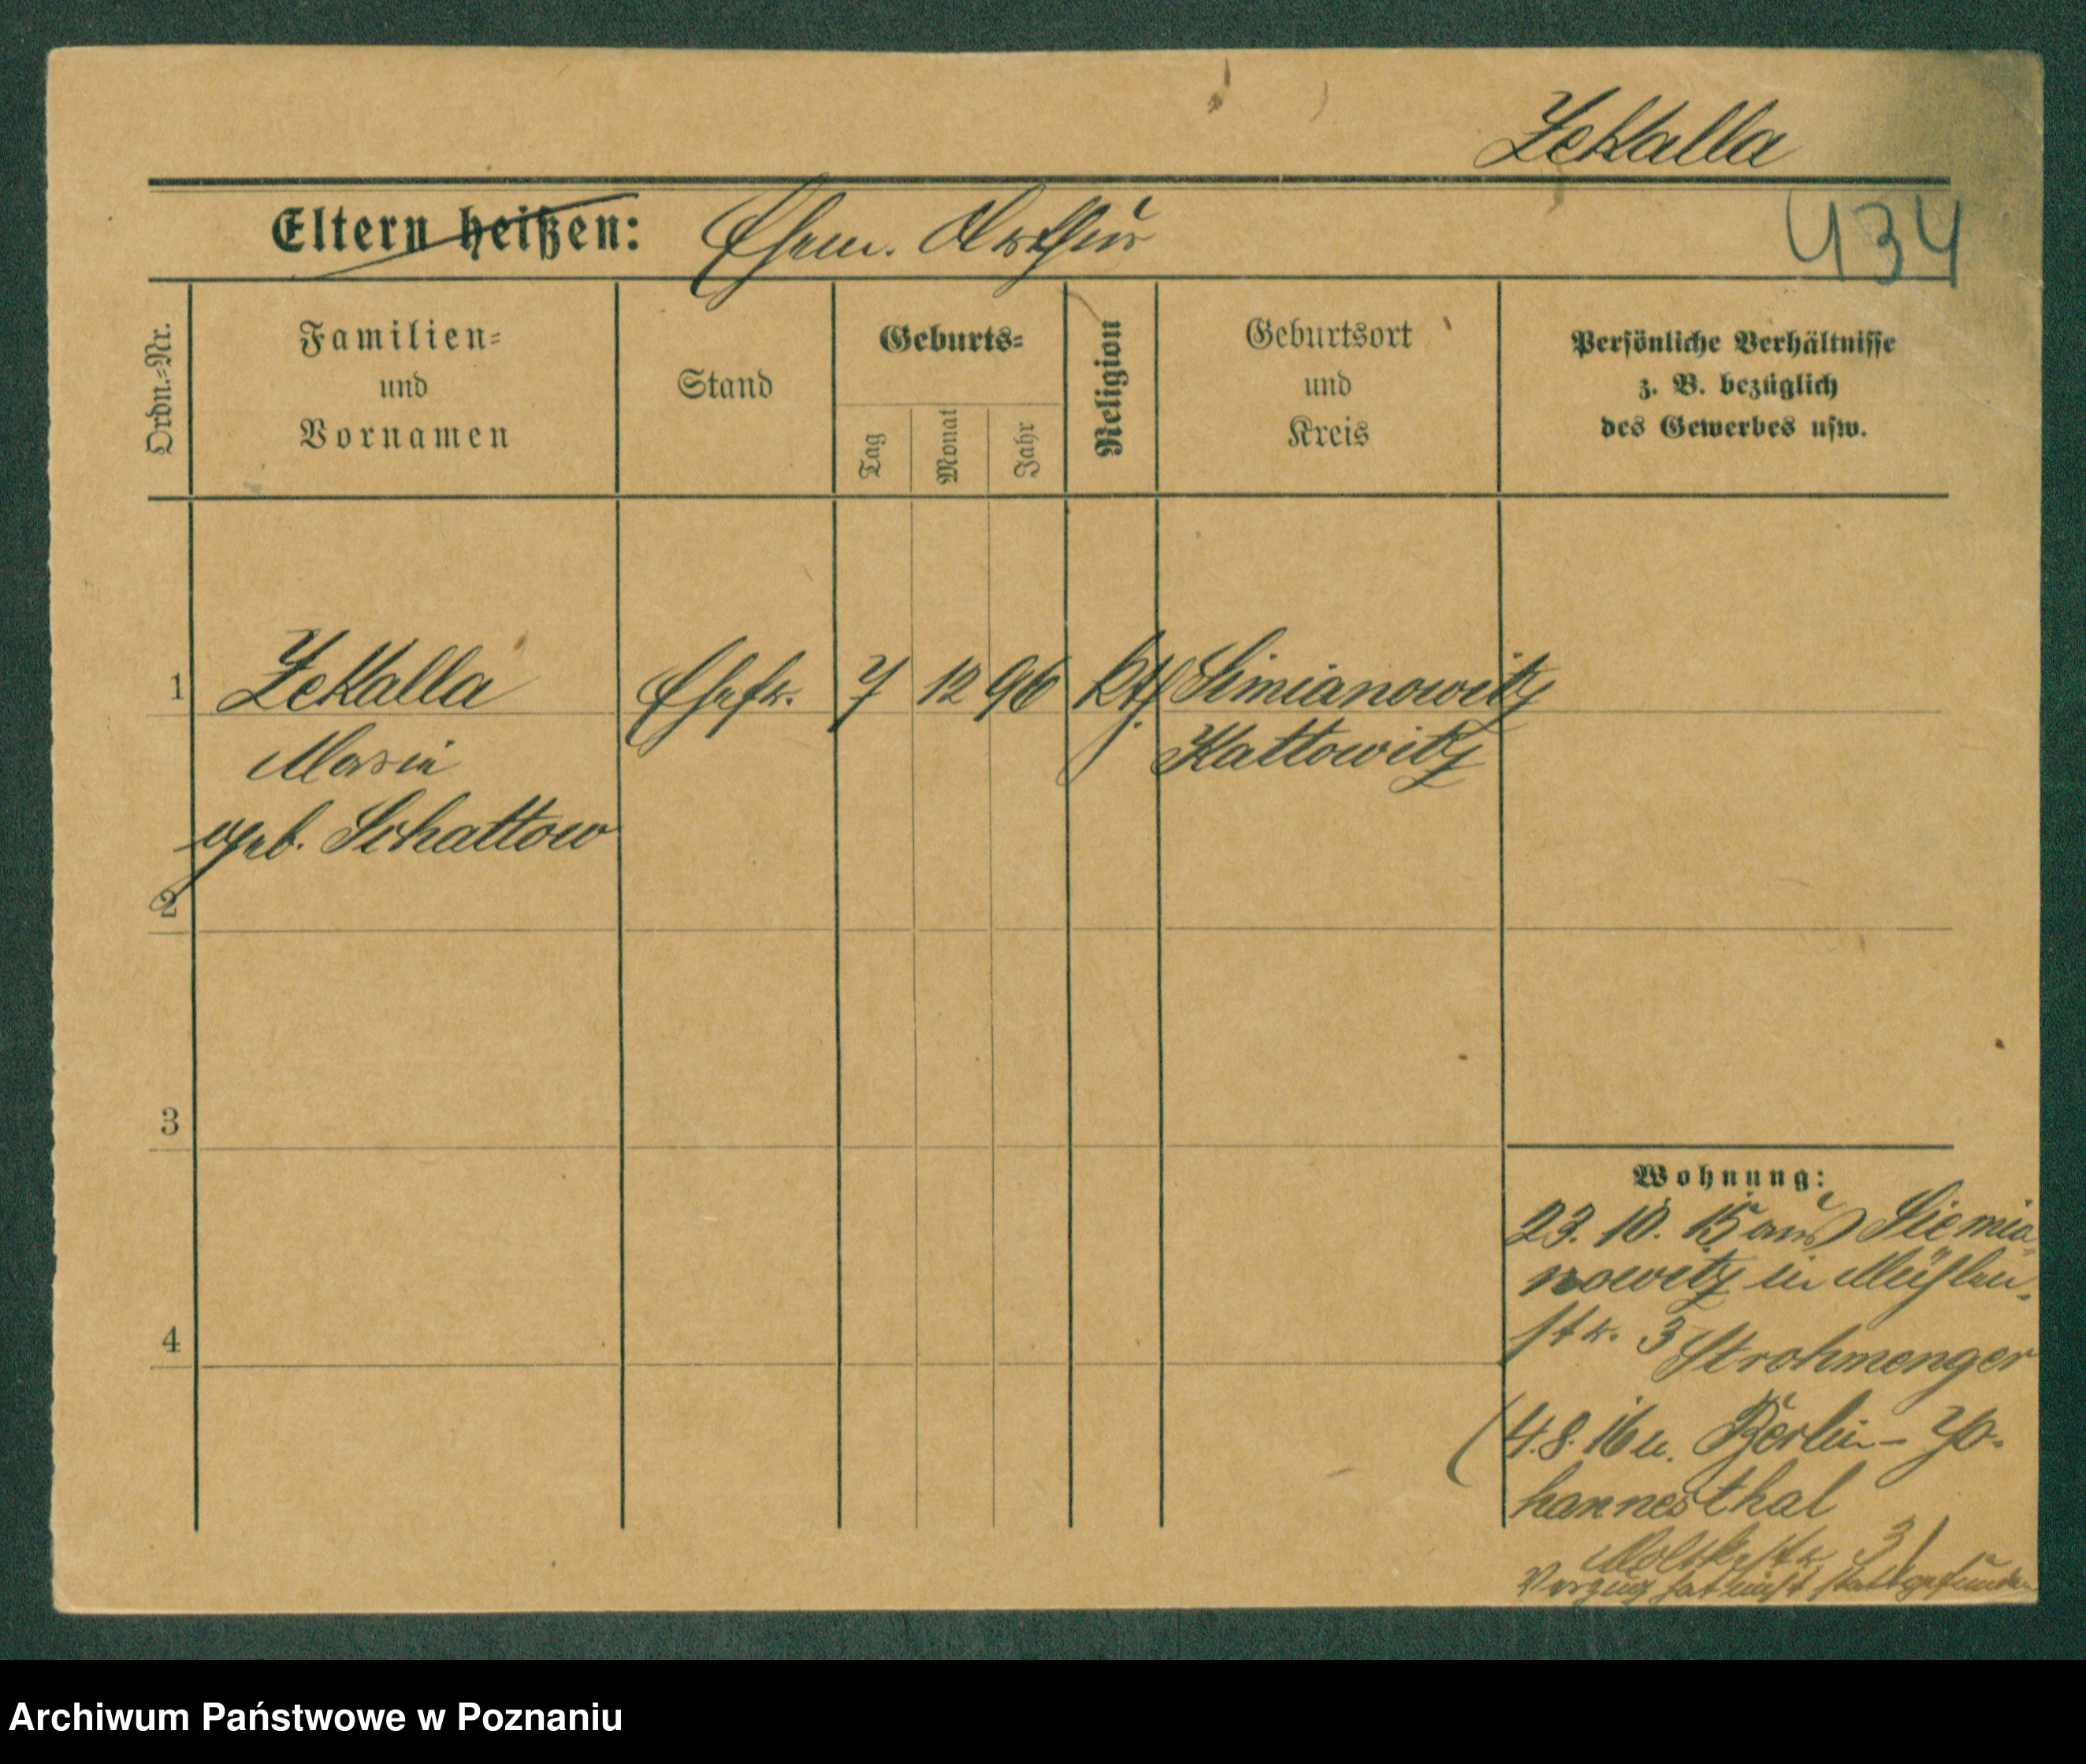 Zekalla
Eltern heißen: Ehem. Arthur
434
Ordn.=Nr.
Familien=
und
Vornamen
Stand
Geburts=
Tag
Monat
Jahr
Religion
Geburtsort
und
Kreis
Persönliche Verhältnisse
z. B. bezüglich
des Gewerbes usw.
1 Zekalla Ehefr. 7 12 96 kth Simianowitz
Maria Kattowitz
geb. Schattow
2
3
4
Wohnung:
23. 10. 15 aus Siemia=
nowitz in Mühlen=
str. 3 Strohmenger
(4.8.16 n. Berlin-Jo=
hannesthal
Moltkestr. 3)
Verzug hat nicht stattgefunden
Archiwum Państwowe w Poznaniu